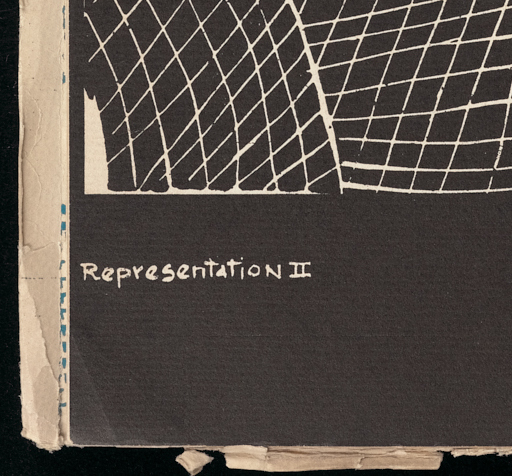 Representation II